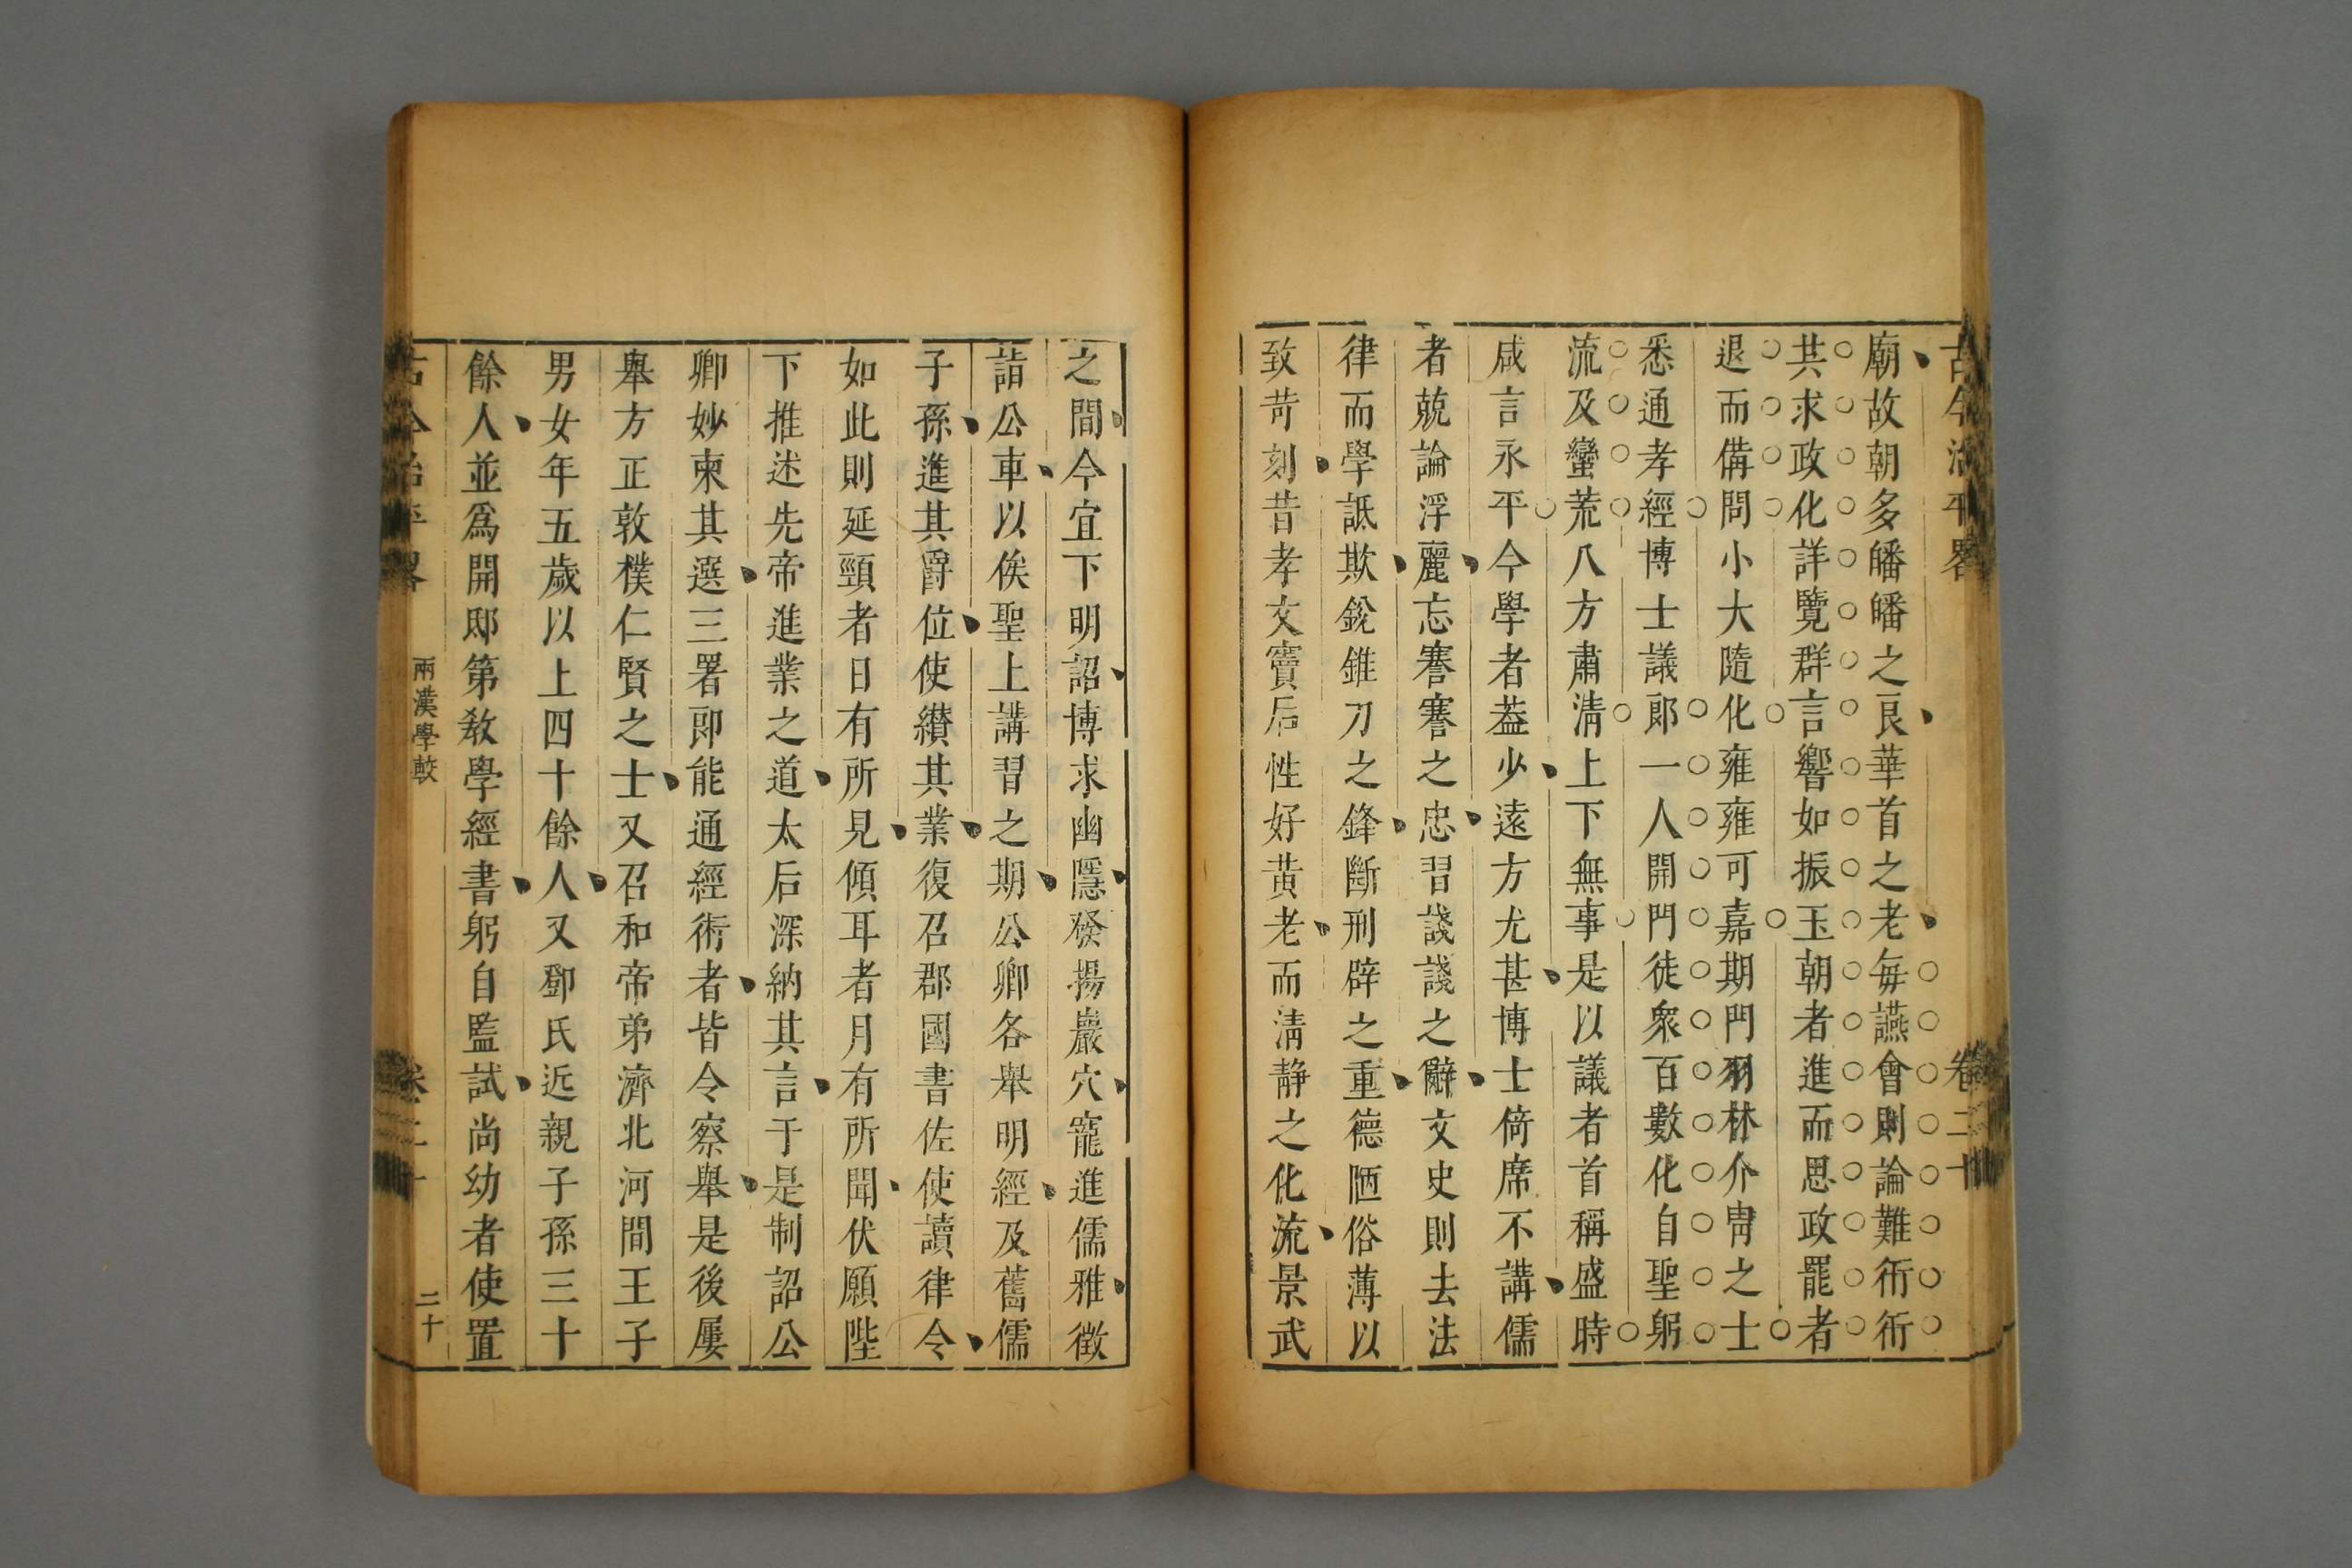 古今治平畧
卷二十
廟故朝多皤皤之良華首之老每讌會則論難衎衎
共求政化詳覽群言響如振玉朝者進而思政罷者
退而備問小大隨化雍雍可嘉期門羽林介冑之士
悉通孝經博士議郎一人開門徒衆百數化自聖躬
流及蠻荒八方肅清上下無事是以議者首稱盛時
咸言永平今學者葢少遠方尤甚博士倚席不講儒
者競論浮麗忘謇謇之忠習諓諓之辭文史則去法
律而學詆欺銳錐刀之鋒斷刑辟之重德陋俗薄以
致苛刻昔孝文竇后性好黃老而清靜之化流景武
之間今宜下明詔博求幽隱發揚巖穴寵進儒雅徵
詣公車以俟聖上講習之期公卿各舉明經及舊儒
子孫進其爵位使纉其業復召郡國書佐使讀律令
如此則延頸者日有所見傾耳者月有所聞伏願陛
下推述先帝進業之道太后深納其言于是制詔公
卿妙柬其選三署郎能通經術者皆令察舉是後屢
舉方正敦樸仁賢之士又召和帝弟濟北河間王子
男女年五歲以上四十餘人又鄧氏近親子孫三十
餘人並爲開邸第敎學經書躬自監試尚幼者使置
古今治平畧
兩漢學較
卷二十
二十